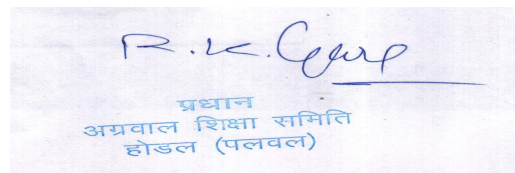 R.K. Garg
प्रधान
अग्रवाल शिक्षा समिति
होडल (पलवल)